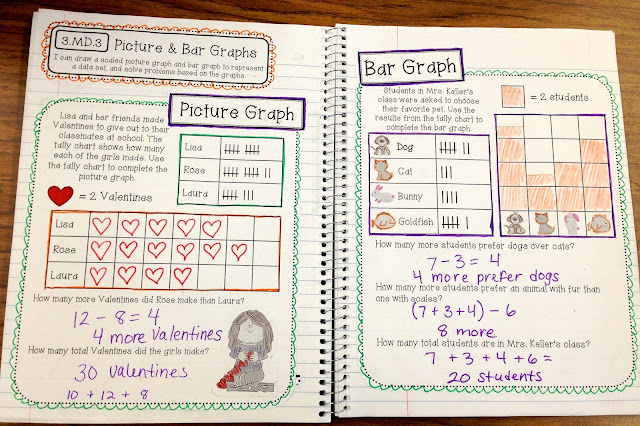 3.MD.3 Picture & Bar Graphs
I can draw a scaled picture graph and bar graph to represent
a data set, and solve problems based on the graphs.
Picture Graph
Lisa and her friends made
Valentines to give out to their
classmates at school. The
tally chart shows how many
each of the girls made. Use
the tally chart to complete the
picture graph.
Lisa
Rose
Laura
= 2 Valentines
Lisa
Rose
Laura
How many more Valentines did Rose make than Laura?
12 - 8 = 4
4 more valentines
How many total Valentines did the girls make?
30 valentines
10 + 12 + 8
Bar Graph
Students in Mrs. Keller's
class were asked to choose
their favorite pet. Use the
results from the tally chart
to complete the bar graph.
= 2 students
Dog
Cat
Bunny
Goldfish
How many more students prefer dogs over cats?
7 - 3 = 4
4 more prefer dogs
How many more students prefer an animal with fur than
one with scales?
(7 + 3 + 4) - 6
8 more
How many total students are in Mrs. Keller's class?
7 + 3 + 4 + 6 =
20 students